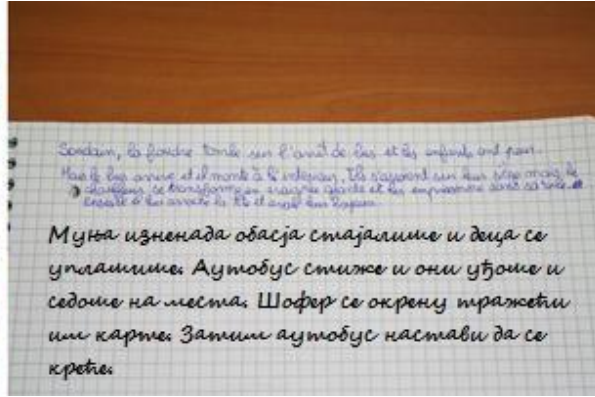 Soudain, la foudre tombe sur l'arrêt de bus et les enfants ont peur.
Mais le bus arrive et il monte à l'
Ils s'assoient sur leur siège mais le
chauffeur se transforme en araignée géante et les emprisonne dans sa toile et
ensuite le bus
Муња изненада обасја стајалише и деца се
уплашише. Аутобус стиже и они уђоше и
седоше на места. Шофер се окрену тражећи
им карте. Затим аутобус настави да се
креће.